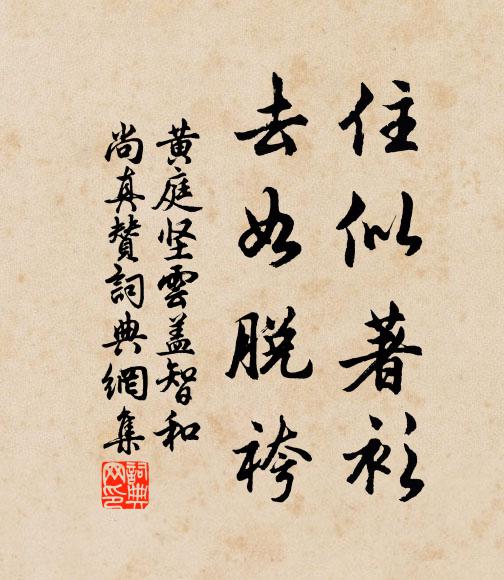 住似著衫
去如脱袴
黄庭坚雲盖智和
尚真赞詞典網集
詞典网印